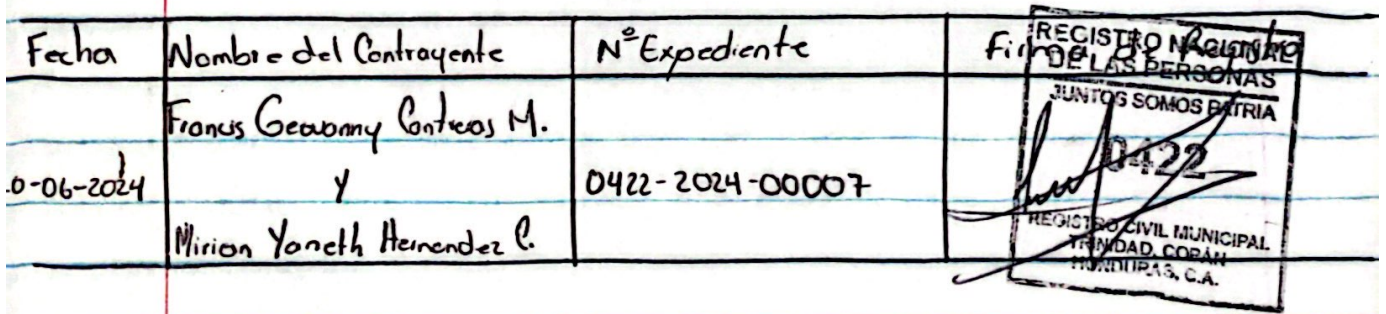 Fecha
Nombre del Contrayente
Nº Expediente
Firma de Recibido
0-06-2024
Francis Geovanny Contreras M.
Y
Mirian Yaneth Hernandez C.
0422-2024-00007
REGISTRO NACIONAL
DE LAS PERSONAS
JUNTOS SOMOS PATRIA
0422
REGISTRO CIVIL MUNICIPAL
TRINIDAD, COPÁN
HONDURAS, C.A.